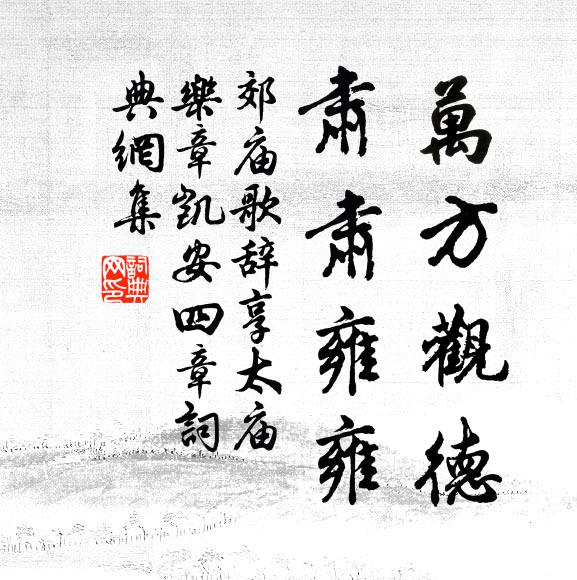 萬方觀德
肅肅雍雍
郊庙歌辞享太庙
樂章凱安四章詞
典網集
詞典網印